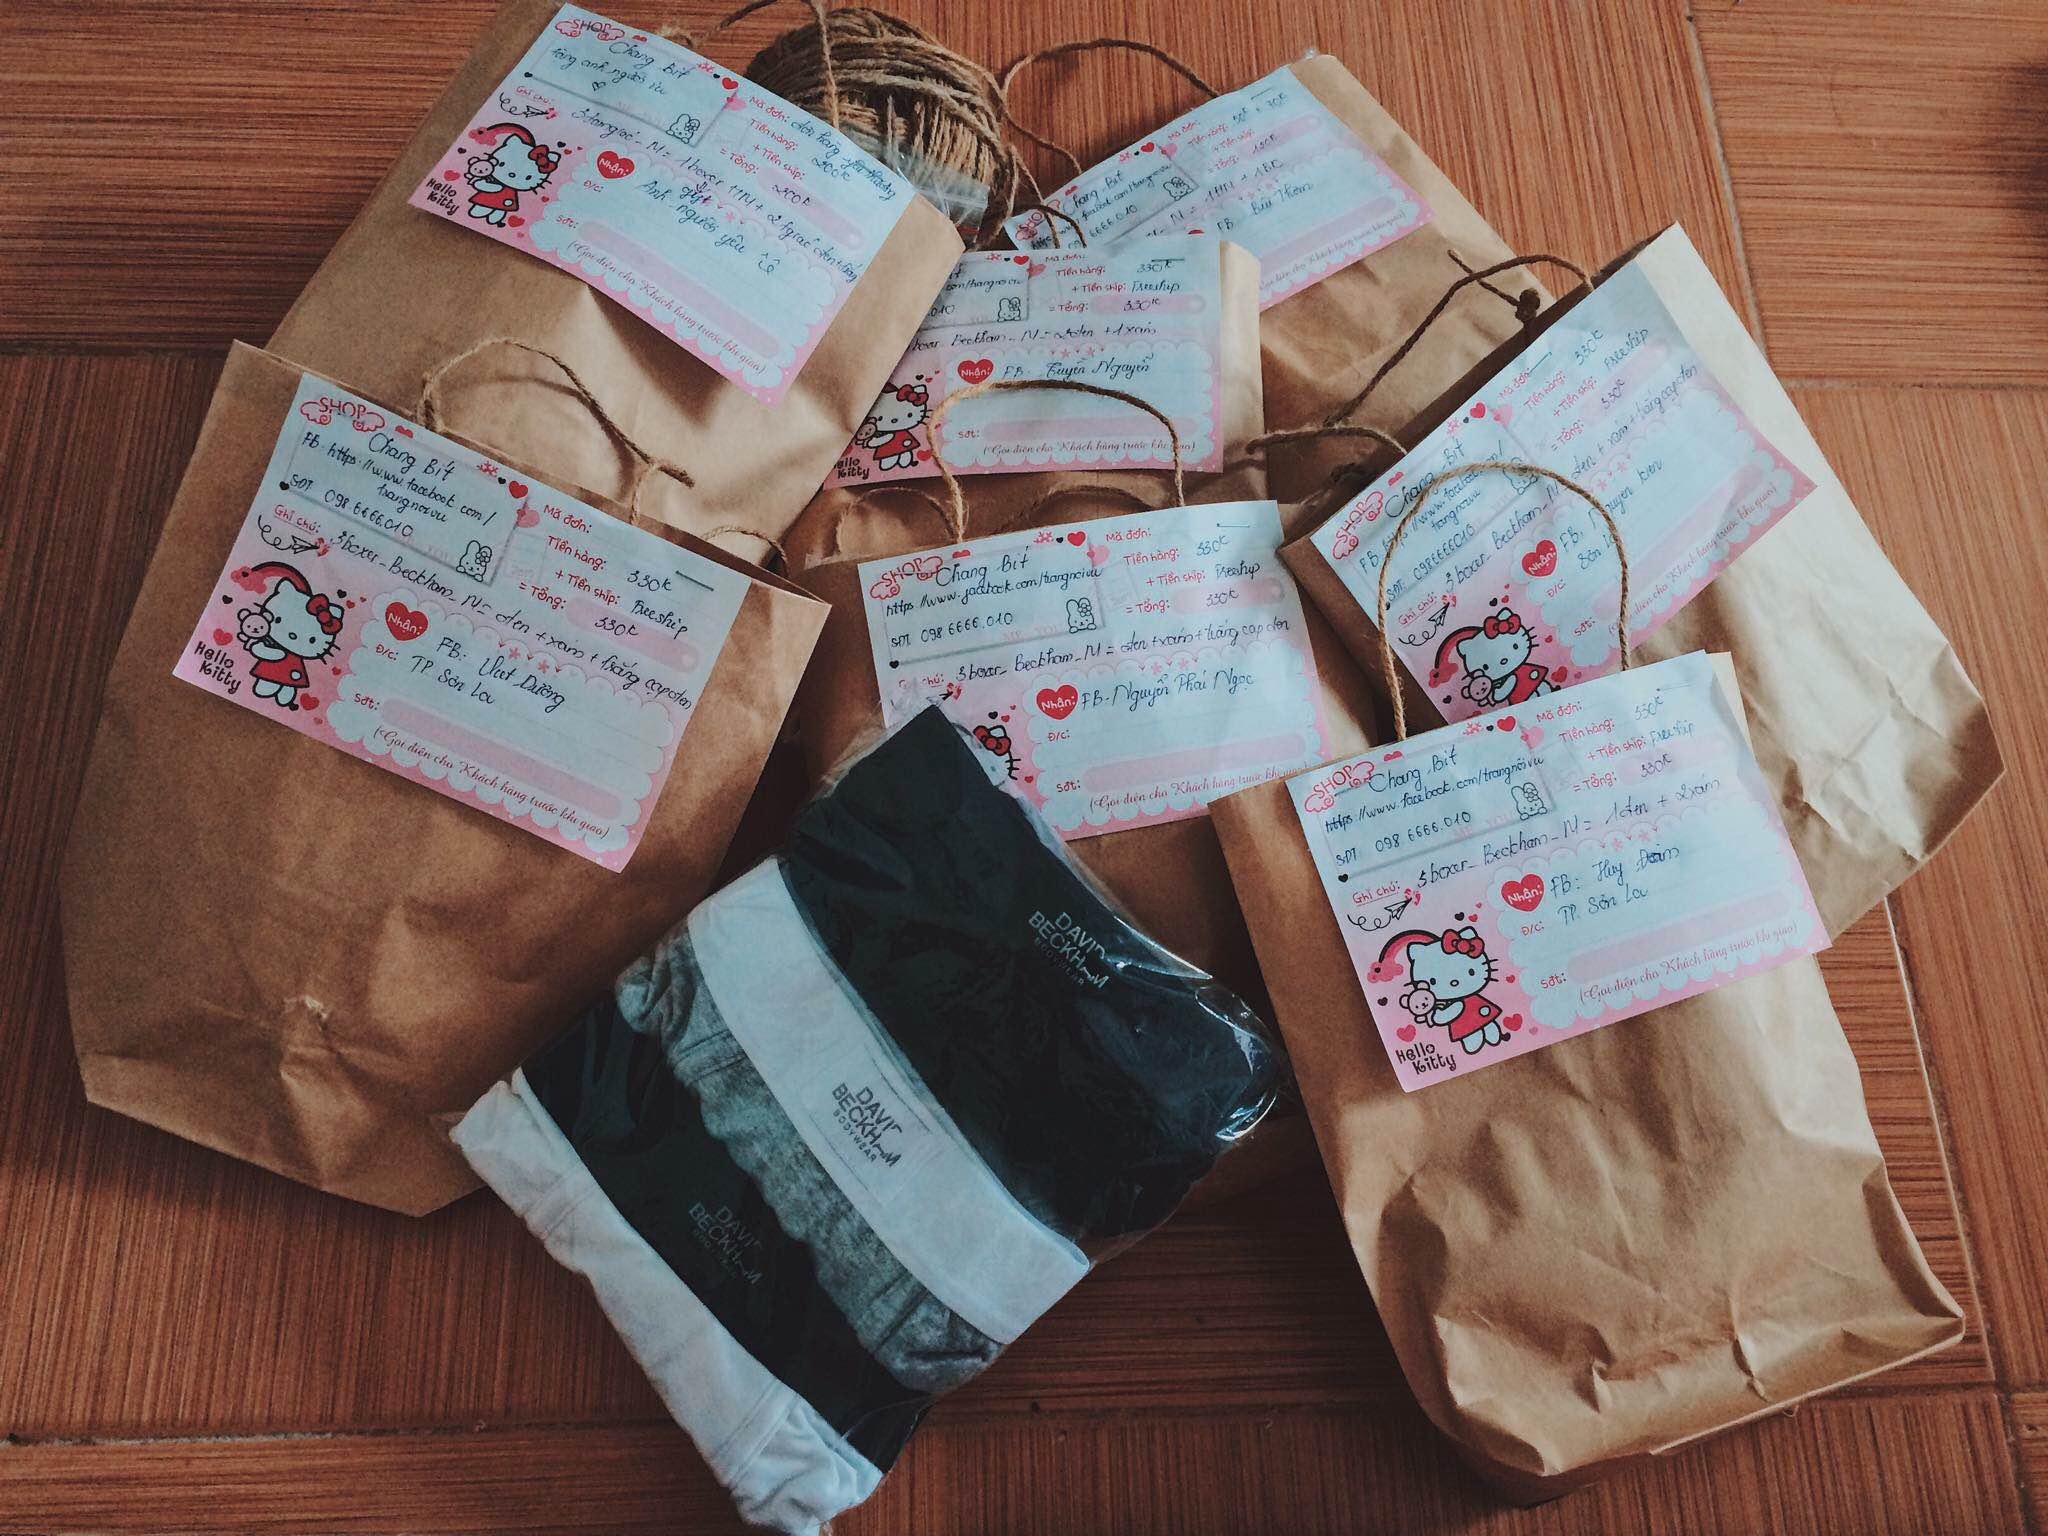 SHOP
Chang Bít
tặng anh người iu
Ghi chú:
Mã đơn: đơn hàng yêu thương
Tiền hàng: 200K
+ Tiền ship:
= Tổng: 200K
Nhận:
Anh người yêu
Đ/c:
Sđt:
(Gọi điện cho Khách hàng trước khi giao)
Hello Kitty
Chang Bít
Mã đơn:
+ Tiền ship:
= Tổng:
M = 1HN + 1BC
FB:
(Gọi điện cho Khách hàng trước khi giao)
Mã đơn:
Tiền hàng: 330K
+ Tiền ship: Freeship
= Tổng: 330K
boxer Beckham_M = 2đen + 1xám
Nhận: FB. Tuyền Nguyễn
Sđt:
(Gọi điện cho Khách hàng trước khi giao)
Hello Kitty
SHOP
Chang Bít
FB: https://www.facebook.com/
trangnoivu
SĐT: 0986666010
Mã đơn:
Tiền hàng: 330K
+ Tiền ship: Freeship
= Tổng: 330K
Ghi chú: 3boxer_Beckham_M = đen + xám + trắng cạp đen
Nhận: FB:
Đ/c: Sơn
Sđt:
(Gọi điện cho Khách hàng trước khi giao)
SHOP
Chang Bít
FB: https://www.facebook.com/
trangnoivu
SĐT 098 6666.010
Mã đơn:
Tiền hàng: 330K
+ Tiền ship: Freeship
= Tổng: 330K
Ghi chú: 3boxer_Beckham_M = đen + xám + trắng cạp đen
Nhận: FB: Việt Dưỡng
Đ/c: TP Sơn La
Sđt:
(Gọi điện cho Khách hàng trước khi giao)
Hello Kitty
SHOP
Chang Bít
https://www.facebook.com/trangnoivu
SĐT 098 6666.010
Mã đơn:
Tiền hàng: 330K
+ Tiền ship: Freeship
= Tổng: 330K
Ghi chú: 3boxer_Beckham_M = đen + xám + trắng cạp đen
Nhận: FB. Nguyễn Phái Ngọc
Đ/c:
Sđt:
(Gọi điện cho Khách hàng trước khi giao)
SHOP
Chang Bít
https://www.facebook.com/trangnoivu
SĐT: 098 6666.010
Mã đơn:
Tiền hàng: 330K
+ Tiền ship: Freeship
= Tổng: 330K
Ghi chú: 3boxer_Beckham_M = 1đen + 2xám
Nhận: FB: Huy Đoàn
Đ/c: TP. Sơn La
Sđt:
(Gọi điện cho Khách hàng trước khi giao)
Hello Kitty
DAVID
BECKHAM
BODYWEAR
DAVID
BECKHAM
BODYWEAR
DAVID
BECKHAM
BODYWEAR